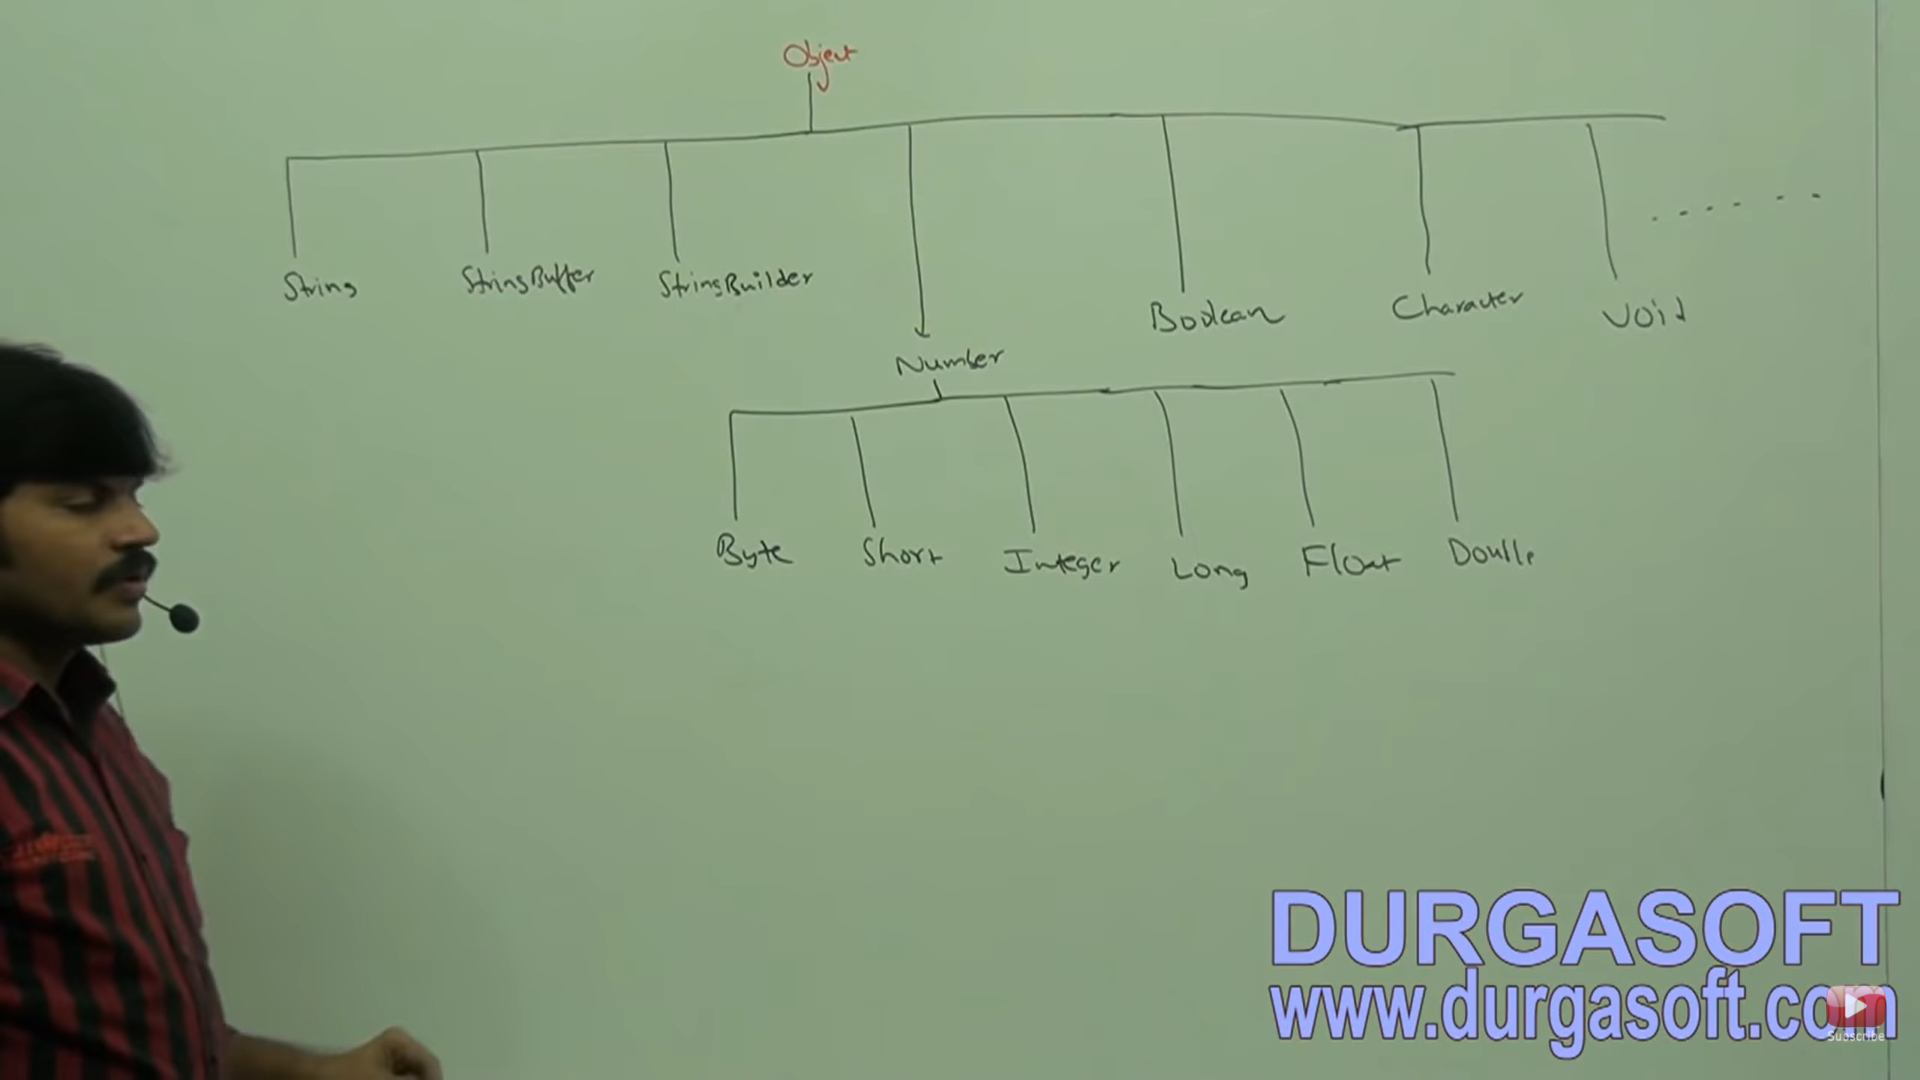 Object
String StringBuffer StringBuilder Boolean Character Void
Number
Byte Short Integer Long Float Double
DURGASOFT
www.durgasoft.com
Subscribe